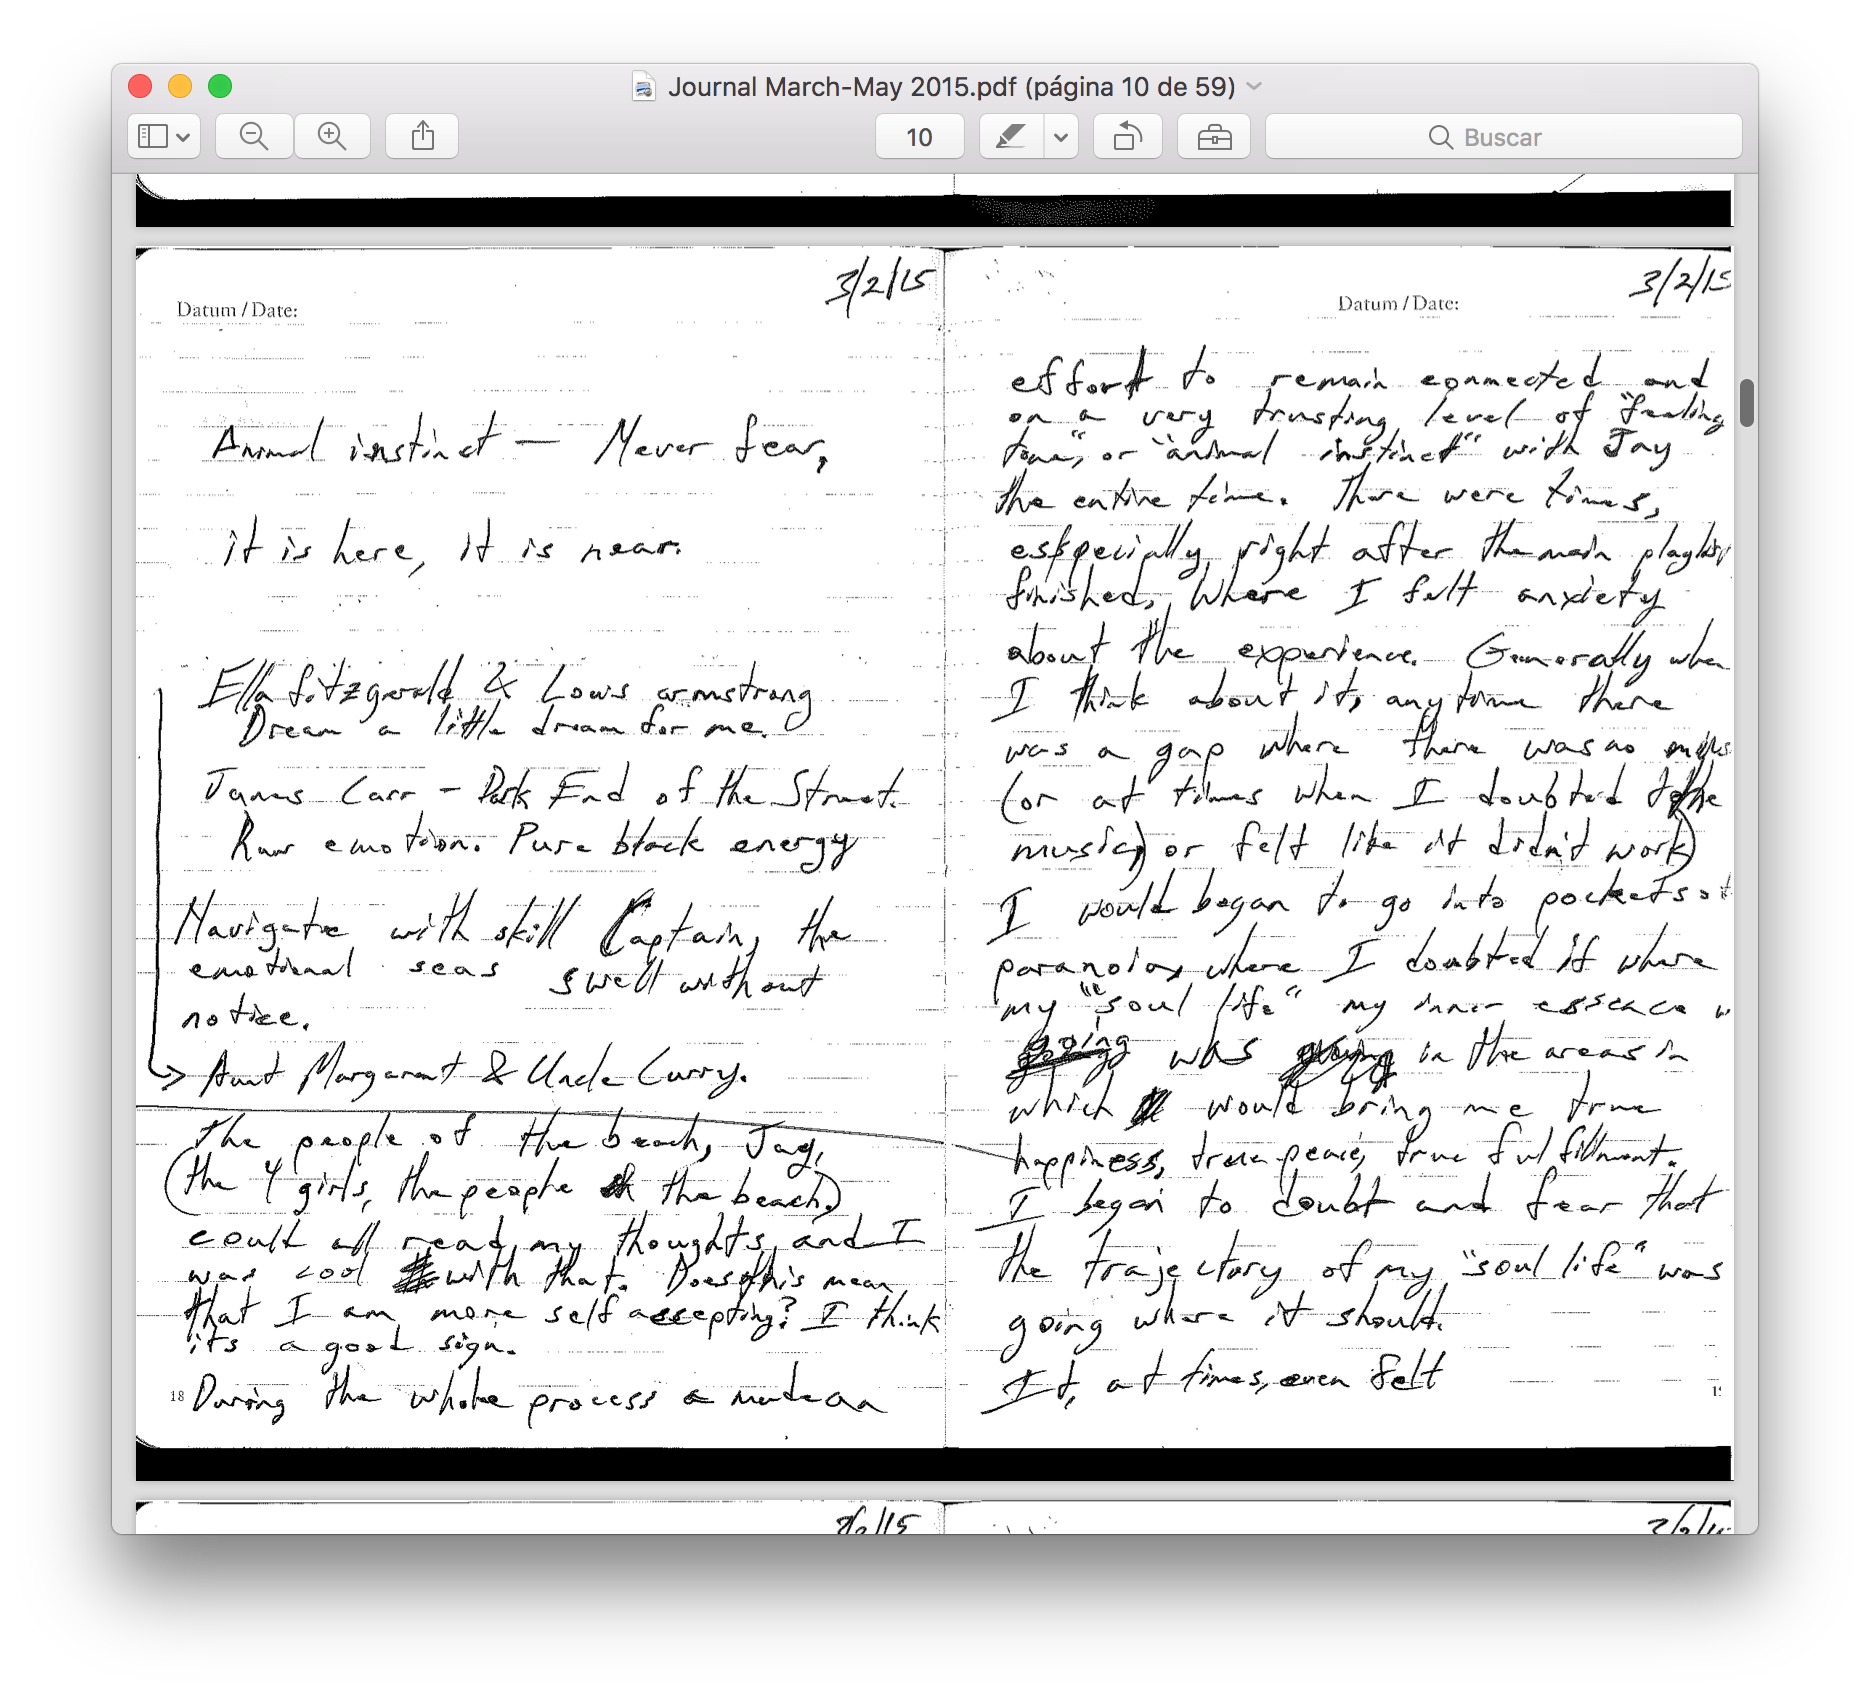 Journal March-May 2015.pdf (página 10 de 59)
10
Buscar
3/2/15
Datum / Date:
Animal instinct — Never fear,
it is here, it is near.
Ella fitzgerald & Lows armstrong
Dream a little dream for me.
James Carr - Dark End of the Street.
Raw emotion. Pure black energy
Navigate with skill Captain, the
emotional seas swell without
notice.
Aunt Margaret & Uncle Curry.
The people of the beach, Jay,
(the 4 girls, the people the beach)
could all read my thoughts, and I
was cool with that. Does this mean
that I am more self accepting? I think
it's a good sign.
18 During the whole process
3/2/15
Datum / Date:
effort to remain connected and
on a very trusting level of "feeling
tone", or "animal instinct" with Jay
the entire time. There were times,
especially right after the main playlist
finished, Where I felt anxiety
about the experience. Generally when
I think about it, anytime there
was a gap where there was no
(or at times when I doubted the
music) or felt like it didn't work)
I would began to go into pockets of
paranoia, where I doubted if where
my "soul life" my inner essence
going was in the areas in
which would bring me true
happiness, true peace, true fulfillment.
I began to doubt and fear that
the trajectory of my "soul life" was
going where it should.
It, at times, even felt